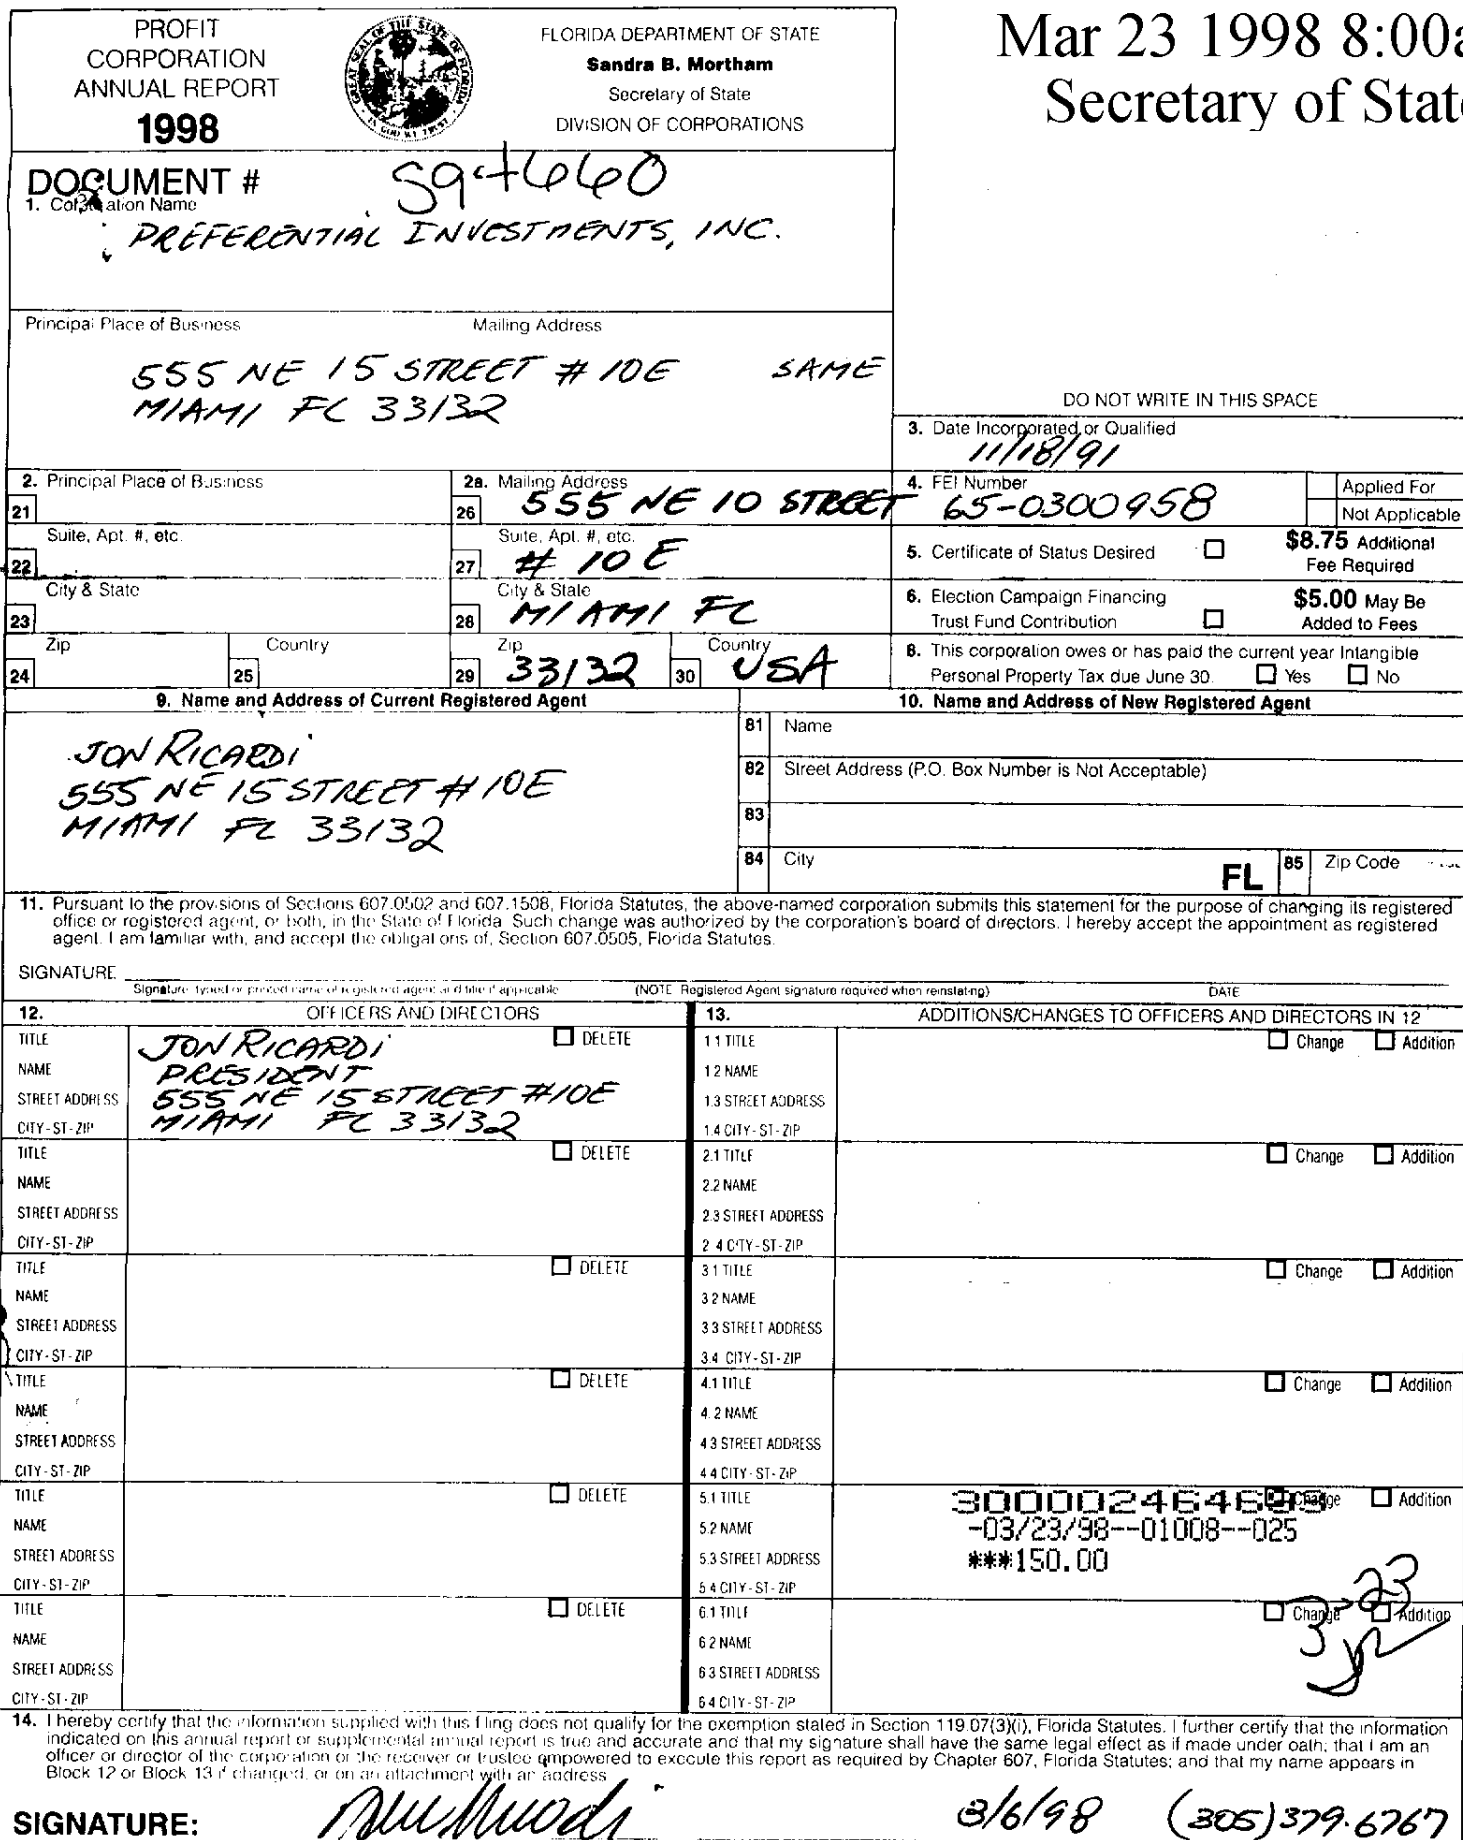 PROFIT
CORPORATION
ANNUAL REPORT
1998
GREAT SEAL OF THE STATE OF FLORIDA
IN GOD WE TRUST
FLORIDA DEPARTMENT OF STATE
Sandra B. Mortham
Secretary of State
DIVISION OF CORPORATIONS
Mar 23 1998 8:00a
Secretary of State
DOCUMENT # S94660
1. Corporation Name
PREFERENTIAL INVESTMENTS, INC.
Principal Place of Business Mailing Address
555 NE 15 STREET # 10E SAME
MIAMI FL 33132
DO NOT WRITE IN THIS SPACE
3. Date Incorporated or Qualified
11/18/91
2. Principal Place of Business
21
Suite, Apt. #, etc.
22
City & State
23
Zip Country
24 25
2a. Mailing Address
26 555 NE 10 STREET
Suite, Apt. #, etc.
27 # 10 E
City & State
28 MIAMI FL
Zip Country
29 33132 30 USA
4. FEI Number
65-0300958
Applied For
Not Applicable
5. Certificate of Status Desired $8.75 Additional
Fee Required
6. Election Campaign Financing
Trust Fund Contribution
$5.00 May Be
Added to Fees
8. This corporation owes or has paid the current year Intangible
Personal Property Tax due June 30. Yes No
9. Name and Address of Current Registered Agent
JON RICARDI
555 NE 15 STREET # 10E
MIAMI FL 33132
10. Name and Address of New Registered Agent
81 Name
82 Street Address (P.O. Box Number is Not Acceptable)
83
84 City FL 85 Zip Code
11. Pursuant to the provisions of Sections 607.0502 and 607.1508, Florida Statutes, the above-named corporation submits this statement for the purpose of changing its registered
office or registered agent, or both, in the State of Florida. Such change was authorized by the corporation's board of directors. I hereby accept the appointment as registered
agent. I am familiar with, and accept the obligations of, Section 607.0505, Florida Statutes.
SIGNATURE
Signature, typed or printed name of registered agent and title if applicable (NOTE Registered Agent signature required when reinstating) DATE
12. OFFICERS AND DIRECTORS
TITLE JON RICARDI DELETE
NAME PRESIDENT
STREET ADDRESS 555 NE 15 STREET #10E
CITY-ST-ZIP MIAMI FL 33132
TITLE DELETE
NAME
STREET ADDRESS
CITY-ST-ZIP
TITLE DELETE
NAME
STREET ADDRESS
CITY-ST-ZIP
TITLE DELETE
NAME
STREET ADDRESS
CITY-ST-ZIP
TITLE DELETE
NAME
STREET ADDRESS
CITY-ST-ZIP
TITLE DELETE
NAME
STREET ADDRESS
CITY-ST-ZIP
13. ADDITIONS/CHANGES TO OFFICERS AND DIRECTORS IN 12
1.1 TITLE Change Addition
1.2 NAME
1.3 STREET ADDRESS
1.4 CITY-ST-ZIP
2.1 TITLE Change Addition
2.2 NAME
2.3 STREET ADDRESS
2.4 CITY-ST-ZIP
3.1 TITLE Change Addition
3.2 NAME
3.3 STREET ADDRESS
3.4 CITY-ST-ZIP
4.1 TITLE Change Addition
4.2 NAME
4.3 STREET ADDRESS
4.4 CITY-ST-ZIP
5.1 TITLE Change Addition
5.2 NAME -03/23/98--01008--025
5.3 STREET ADDRESS ***150.00
5.4 CITY-ST-ZIP
6.1 TITLE Change Addition
3-23
6.2 NAME
6.3 STREET ADDRESS
6.4 CITY-ST-ZIP
14. I hereby certify that the information supplied with this filing does not qualify for the exemption stated in Section 119.07(3)(i), Florida Statutes. I further certify that the information
indicated on this annual report or supplemental annual report is true and accurate and that my signature shall have the same legal effect as if made under oath; that I am an
officer or director of the corporation or the receiver or trustee empowered to execute this report as required by Chapter 607, Florida Statutes; and that my name appears in
Block 12 or Block 13 if changed, or on an attachment with an address
SIGNATURE: 3/6/98 (305)379-6767